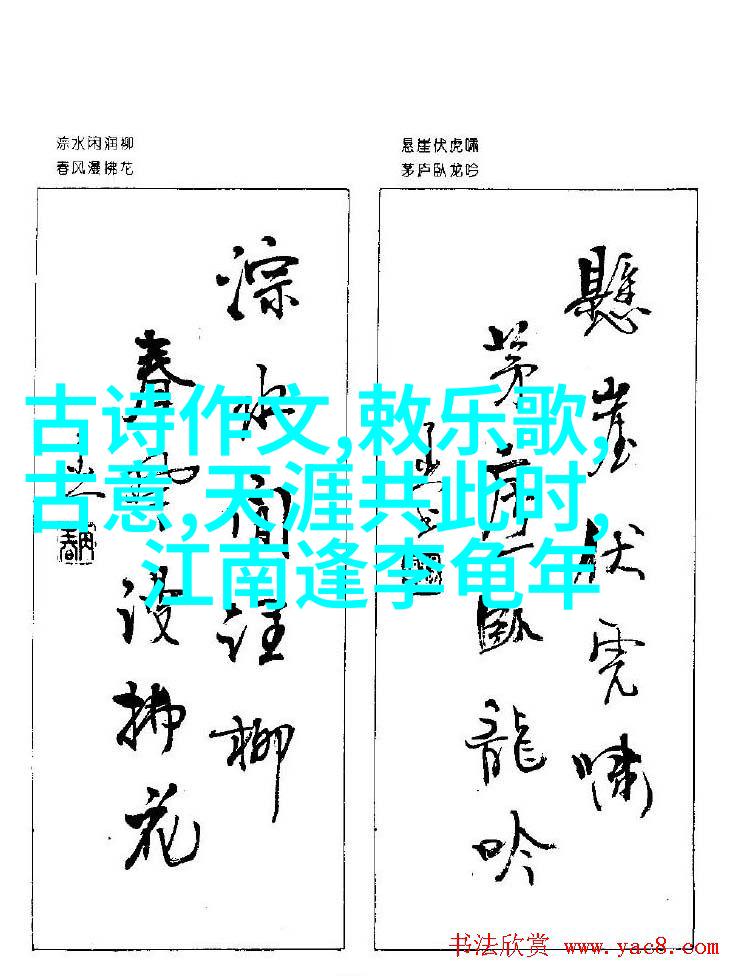 淙水闲润柳
春风漫拂花
悬崖伏虎啸
茅庐卧龙吟
古诗作文,敕乐歌,
古意,天涯共此时,
江南逢李龟年
淙水閒润柳
春風漫拂花
懸崖伏虎嘯
茅庐卧龍吟
书法欣赏 www.yac8.com